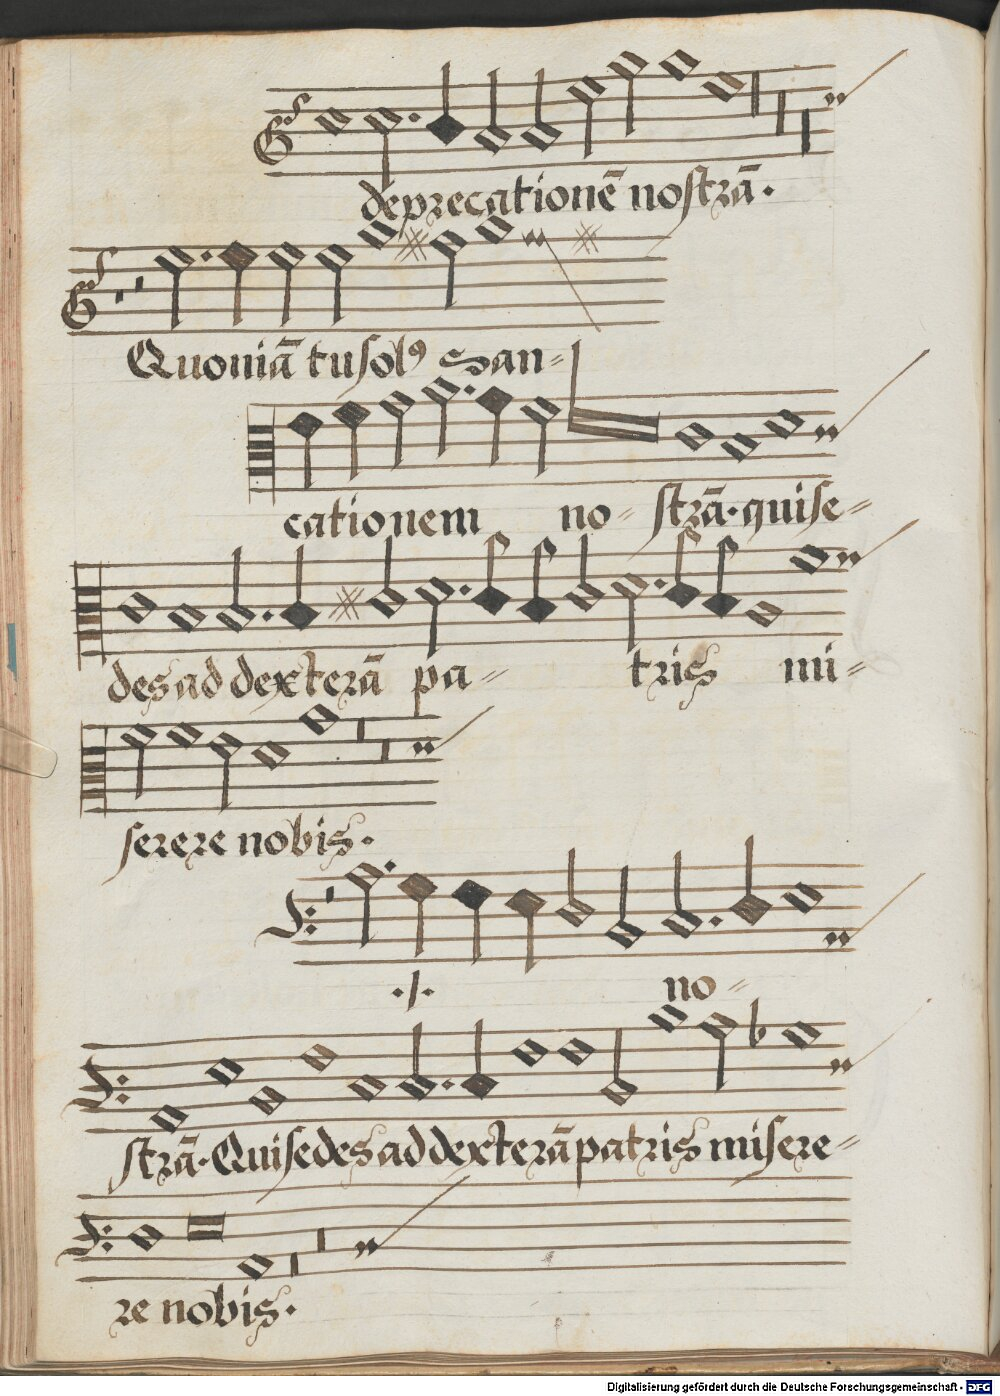 deprecationē noſtrā.
Quoniā tu ſolꝰ San=
cationem no= ſtrā. qui ſe=
des ad dexterā pa= tris mi=
ſerere nobis.
./. no=
ſtrā. Qui ſedes ad dexterā patris miſere=
re nobis.
Digitalisierung gefördert durch die Deutsche Forschungsgemeinschaft - DFG